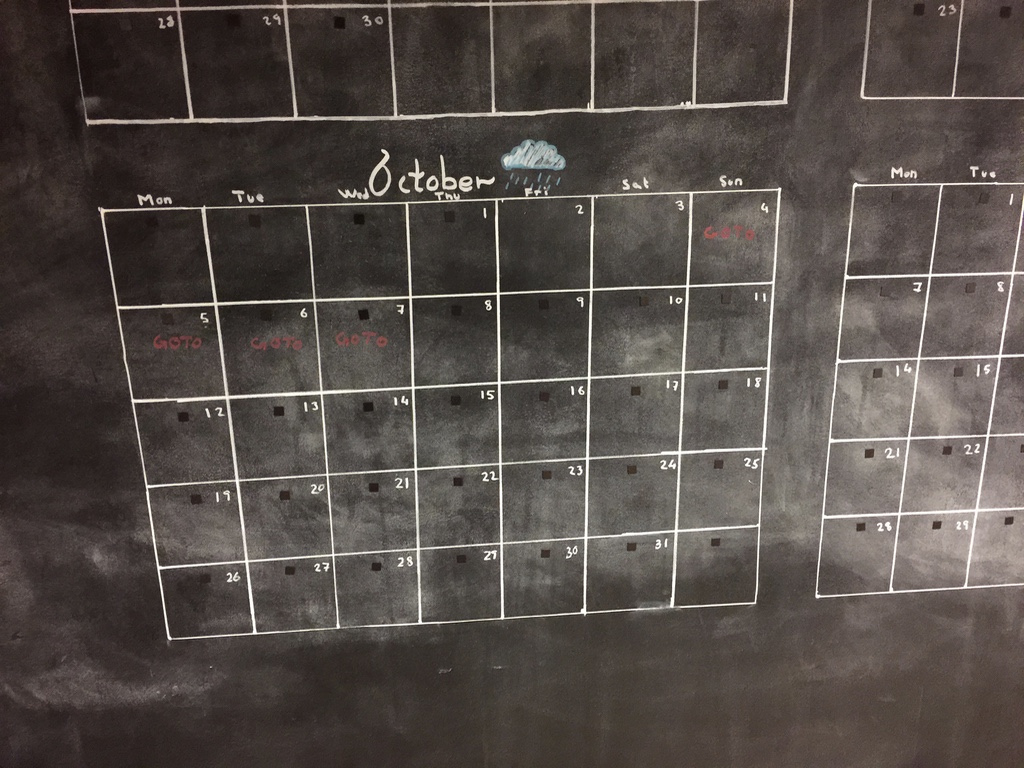 28 29 30
23
October
Mon Tue Wed Thu Fri Sat Sun
1 2 3 4
GOTO
5 6 7 8 9 10 11
GOTO GOTO GOTO
12 13 14 15 16 17 18
19 20 21 22 23 24 25
26 27 28 29 30 31
Mon Tue
1
7 8
14 15
21 22
28 29